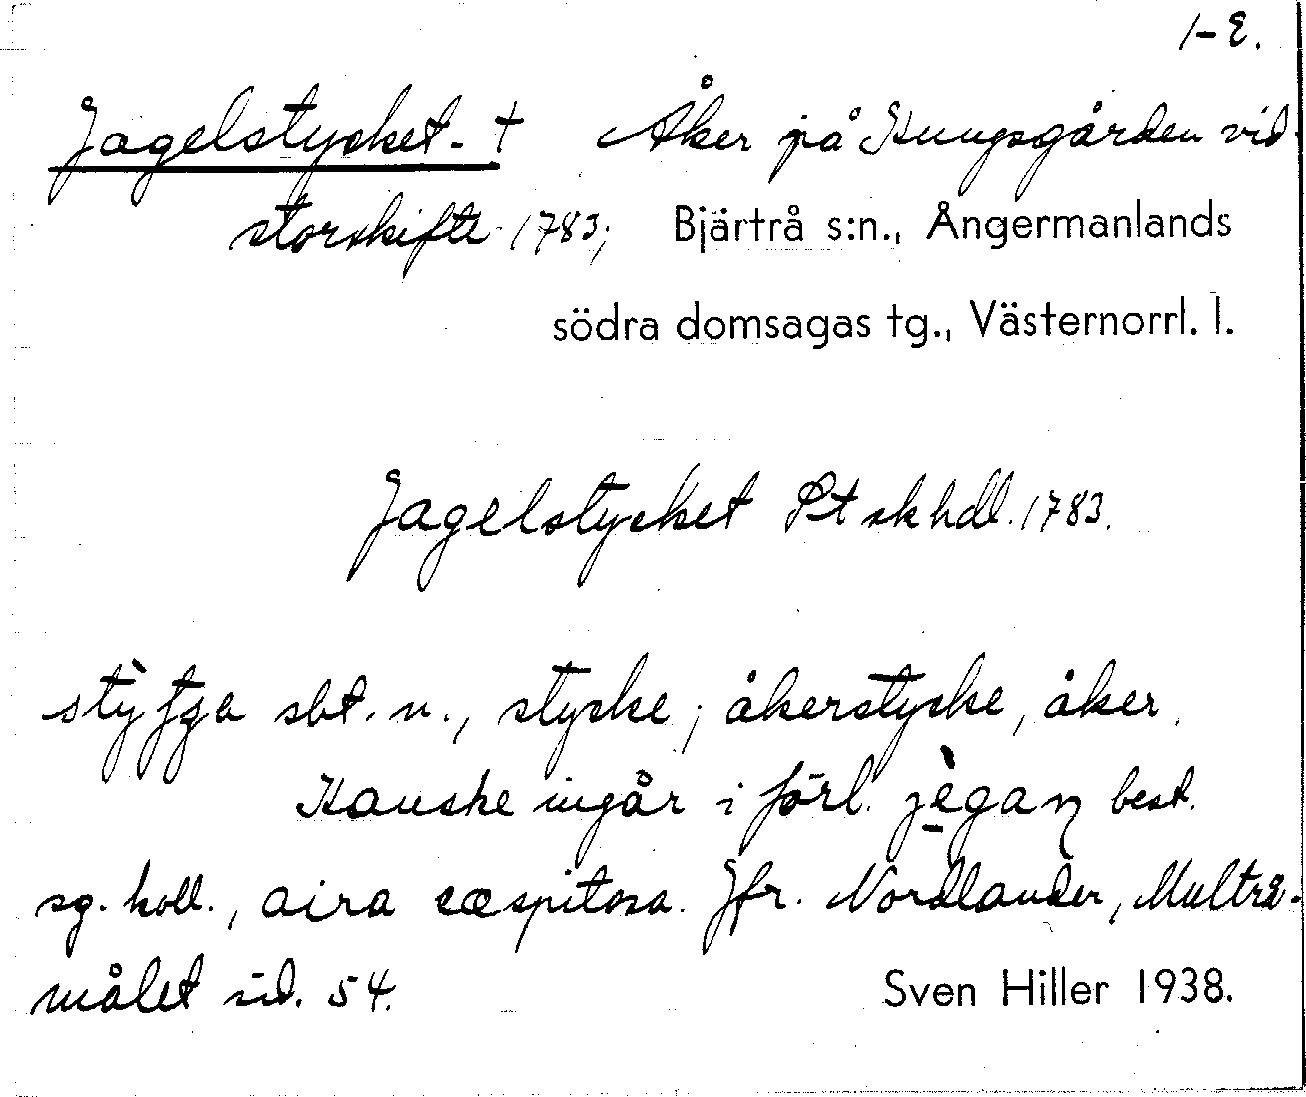 1-E.
Jagelstycket. † Åker på Kungsgården vid
storskifte 1783; Bjärtrå s:n., Ångermanlands
södra domsagas tg., Västernorrl. l.
Jagelstycket St skhdl. 1783.
sbt. n., stycke; åkerstycke, åker.
Kanske ingår i förl. best.
sg. koll., aira cæspitosa. Jfr. Nordlander, Multrå-
målet sid. 54. Sven Hiller 1938.